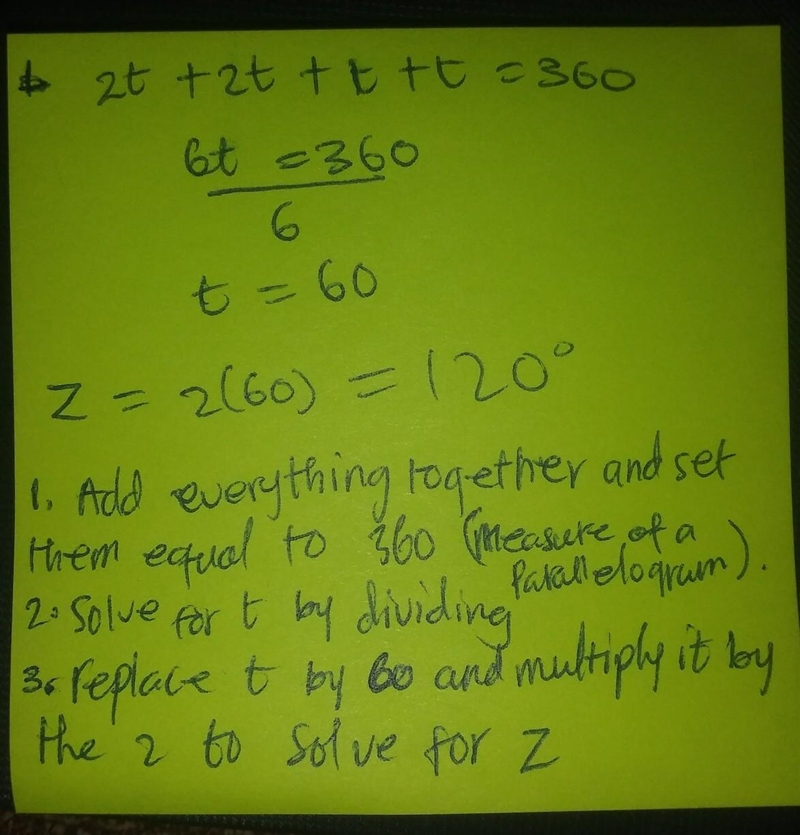 2t + 2t + t + t = 360
6t = 360
6
t = 60
z = 2(60) = 120°
1. Add everything together and set
them equal to 360 (measure of a
parallelogram).
2. Solve for t by dividing
3. replace t by 60 and multiply it by
the 2 to solve for z